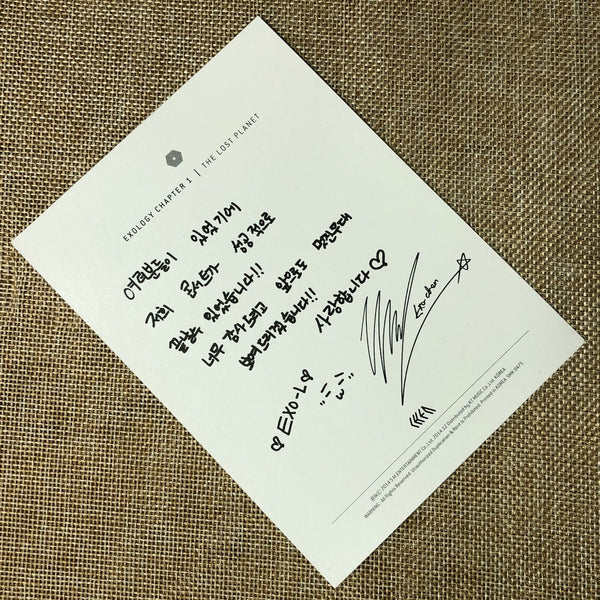 EXOLOGY CHAPTER 1 | THE LOST PLANET
여러분들이 있었기에
저희 콘서트가 성공적으로
끝날수 있었습니다!!
너무 감사드리고 앞으로도 멋진무대
보여드리겠습니다!! 사랑합니다♡
♡EXO-L♡
℗&ⓒ 2014 S.M.ENTERTAINMENT Co.,Ltd. 2014.12 Distributed by KT MUSIC Co.,Ltd. KOREA.
WARNING : All Rights Reserved. Unauthorized Duplication & Rent is Prohibited. Printed in KOREA. SMK 0475